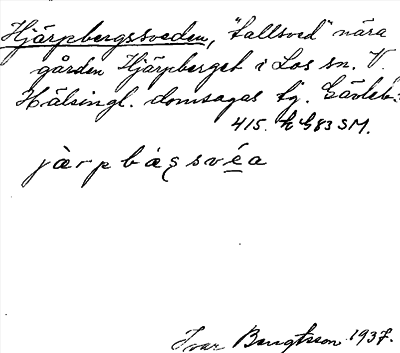 Hjärpbergssveden, "tallsved" nära
gården Hjärpberget i Los sn. V.
Hälsingl. domsagas tg. Gävleb:
415. h G83 SM.
jàrpbáʂsvéa
Ivar Bengtsson 1937.